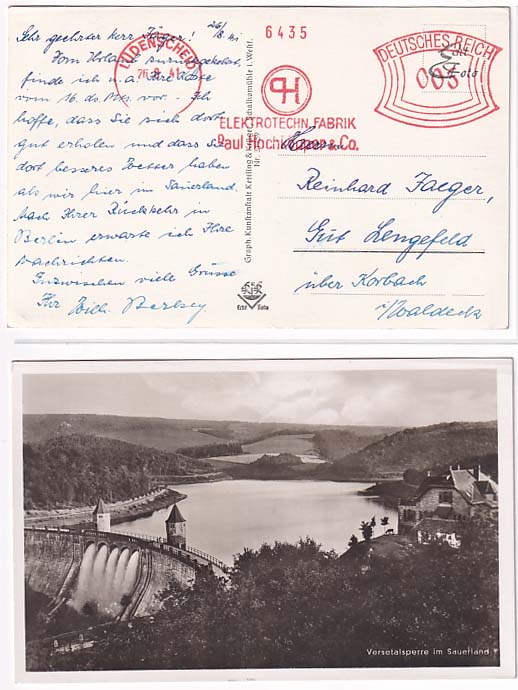 Sehr geehrter Herr Jäger!
Vom Holland zurückgekehrt,
finde ich u. a. Ihre Karte
vom 16. ds. Mts. vor. Ich
hoffe, dass Sie sich dort
gut erholen und dass Sie
dort besseres Wetter haben
als wir hier im Sauerland.
Nach Ihrer Rückkehr in
Berlin erwarte ich Ihre
Nachrichten.
Inzwischen viele Grüsse
Ihr Wilh.
LÜDENSCHEID
26.8.41
6435
PH
ELEKTROTECHN. FABRIK
Paul Hochköpper & Co.
DEUTSCHES REICH
003
Echt
Foto
Graph. Kunstanstalt Kettling & Krüger, Schalksmühle i. Westf.
Nr.
Echt Foto
Herrn
Reinhard Jaeger,
Gut Lengefeld
über Korbach
i/Waldeck
Versetalsperre im Sauerland